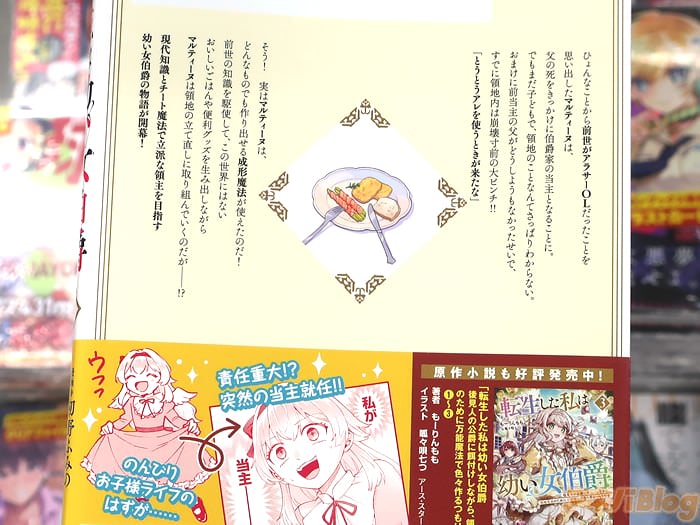 ひょんなことから前世がアラサーOLだったことを
思い出したマルティーヌは、
父の死をきっかけに伯爵家の当主となることに。
でもまだ子どもで、領地のことなんてさっぱりわからない。
おまけに前当主の父がどうしようもなかったせいで、
すでに領地内は崩壊寸前の大ピンチ!!
「とうとうアレを使うときが来たな」
そう! 実はマルティーヌは、
どんなものでも作り出せる成形魔法が使えたのだ!
前世の知識を駆使して、この世界にはない
おいしいごはんや便利グッズを生み出しながら
マルティーヌは領地の立て直しに取り組んでいくのだが――!?
現代知識とチート魔法で立派な領主を目指す
幼い女伯爵の物語が開幕!
ウフフ
責任重大!?
突然の当主就任!!
私が
当主
のんびり
お子様ライフの
はずが……
原作小説も好評発売中!
「転生した私は幼い女伯爵
後見人の公爵に餌付けしながら、領
のために万能魔法で色々作るつも
①～③
著者 もーりんもも
イラスト 呱々唄七つ
アース・スター
転生した私は
3
幼い女伯爵
JiBlog